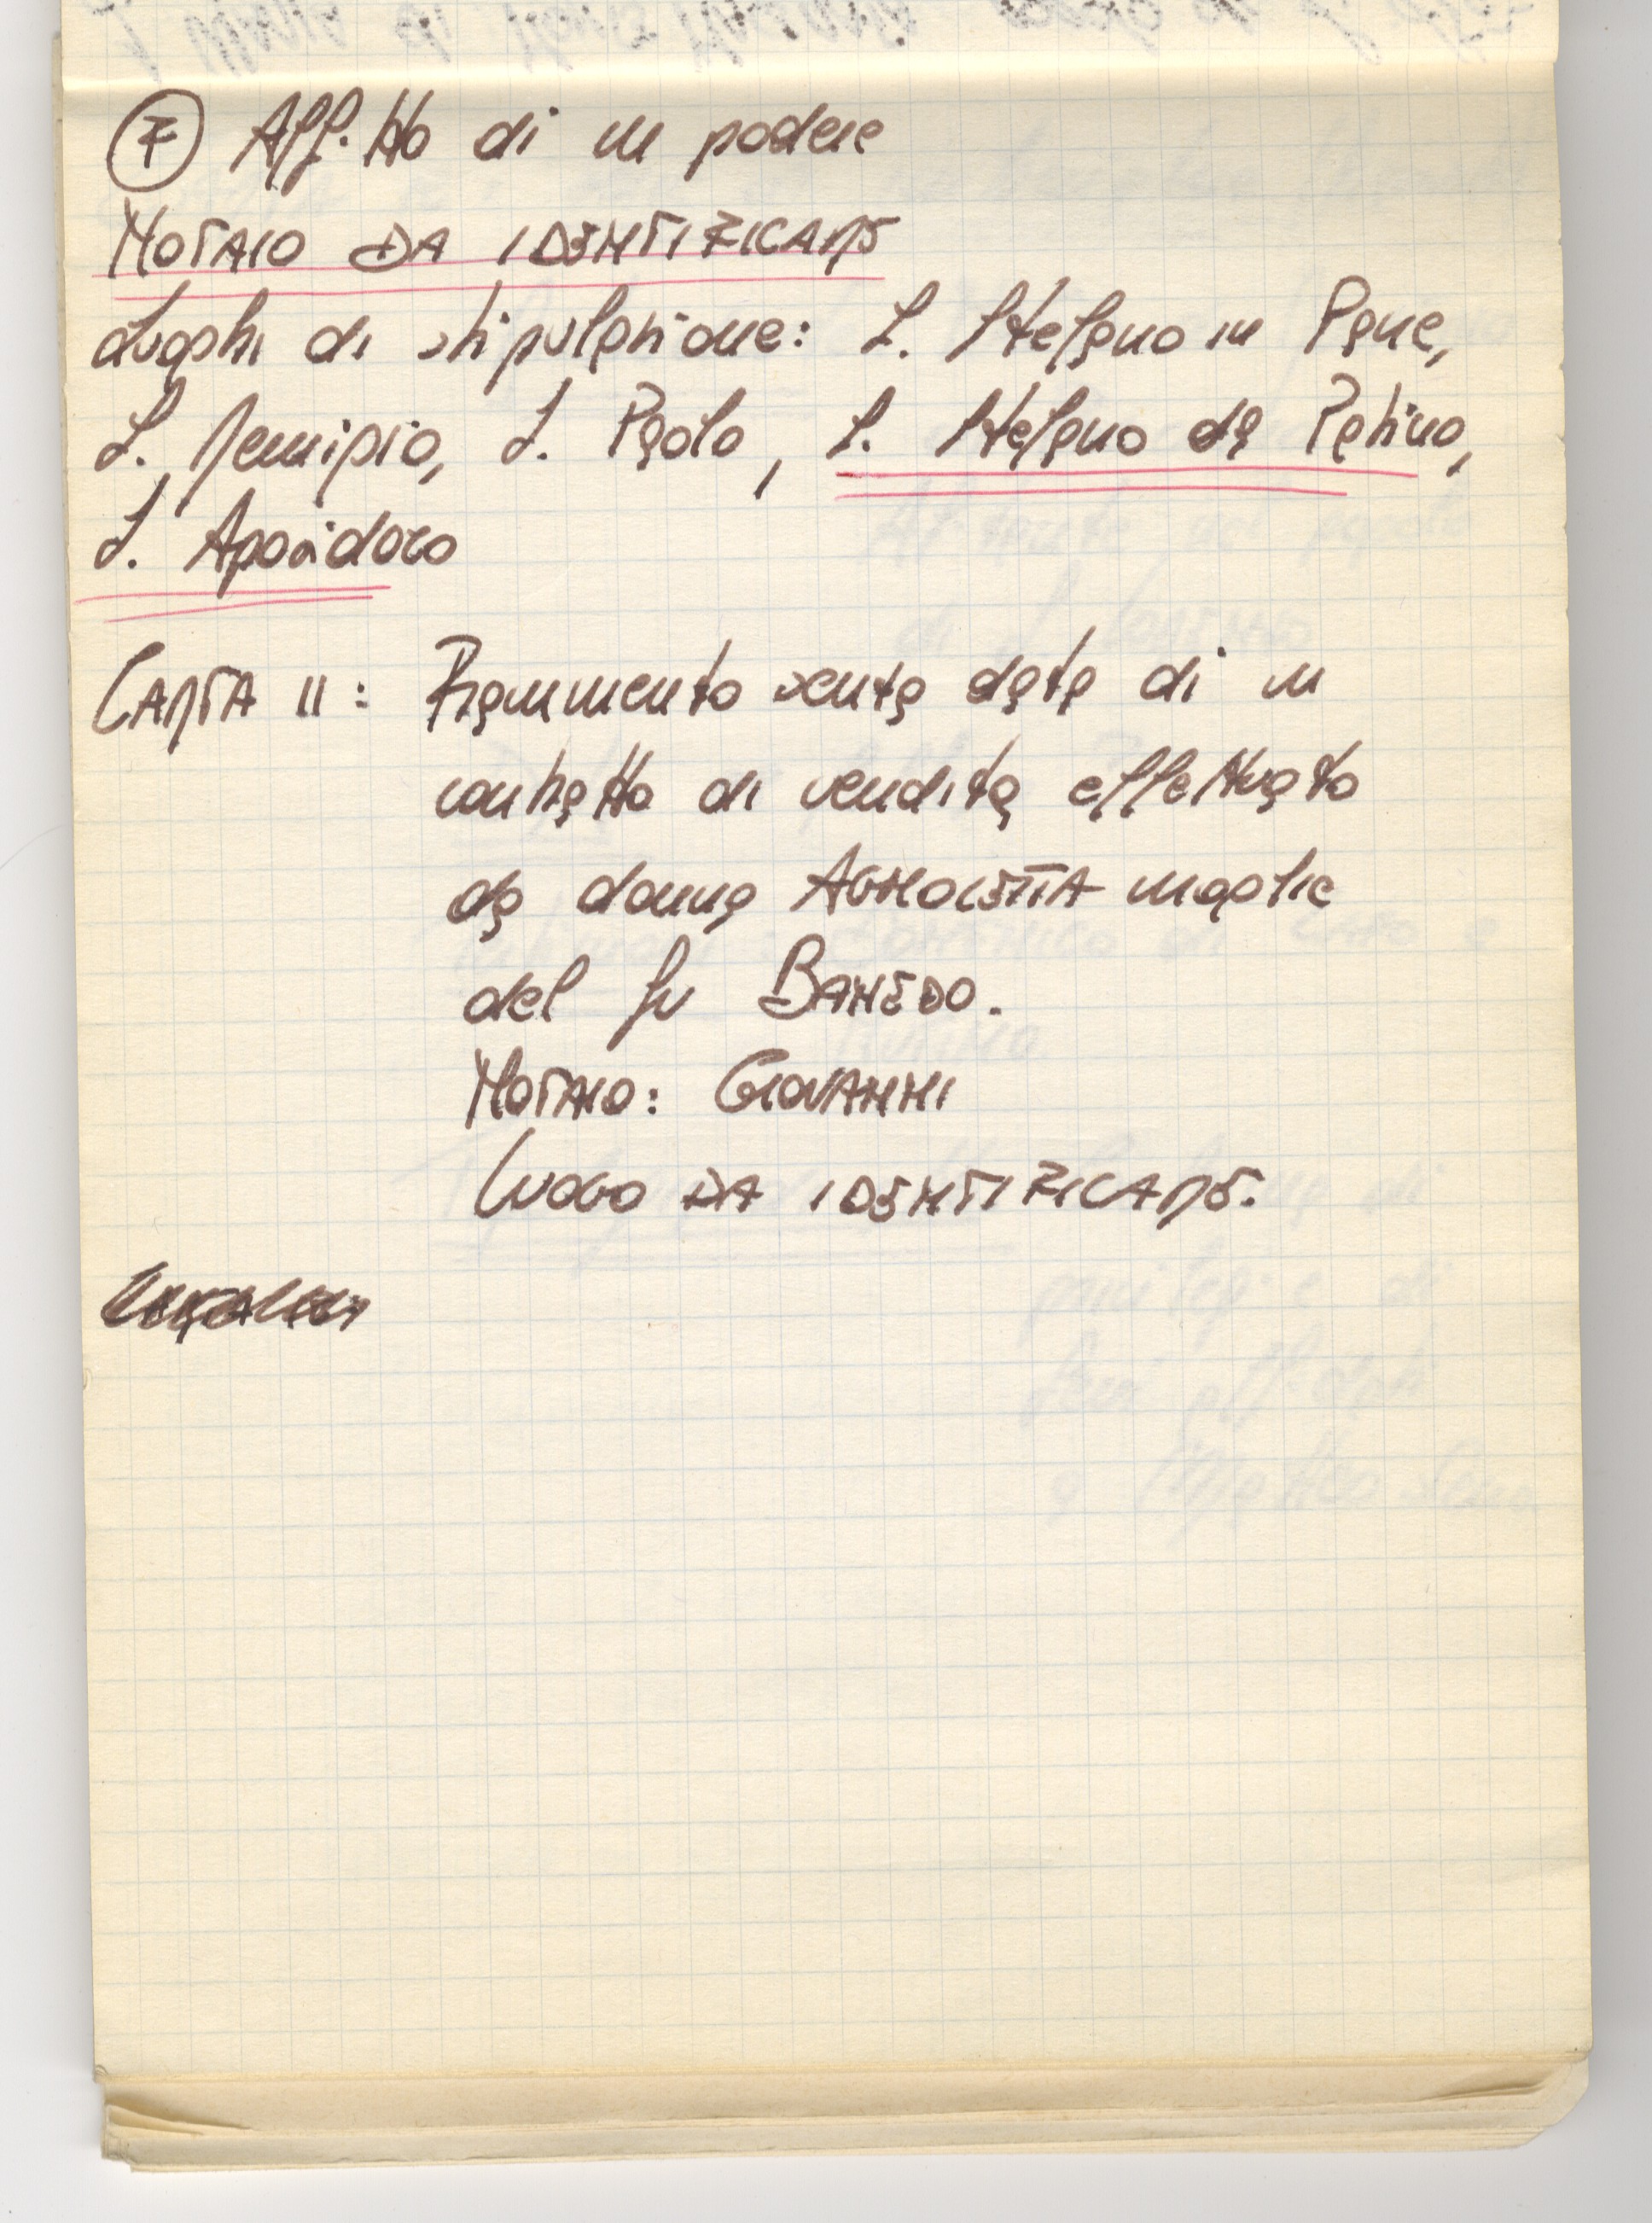 ⑦ Affitto di un podere
NOTAIO DA IDENTIFICARE
Luoghi di stipulazione: S. Stefano in Pane,
S. Remigio, S. Paolo, S. Stefano da Patino,
S.
CARTA 11: Frammento senza data di un
contratto di vendita effettuato
da donna AGNOLETTA moglie
del fu BANEDO.
NOTAIO: GIOVANNI
LUOGO DA IDENTIFICARE.